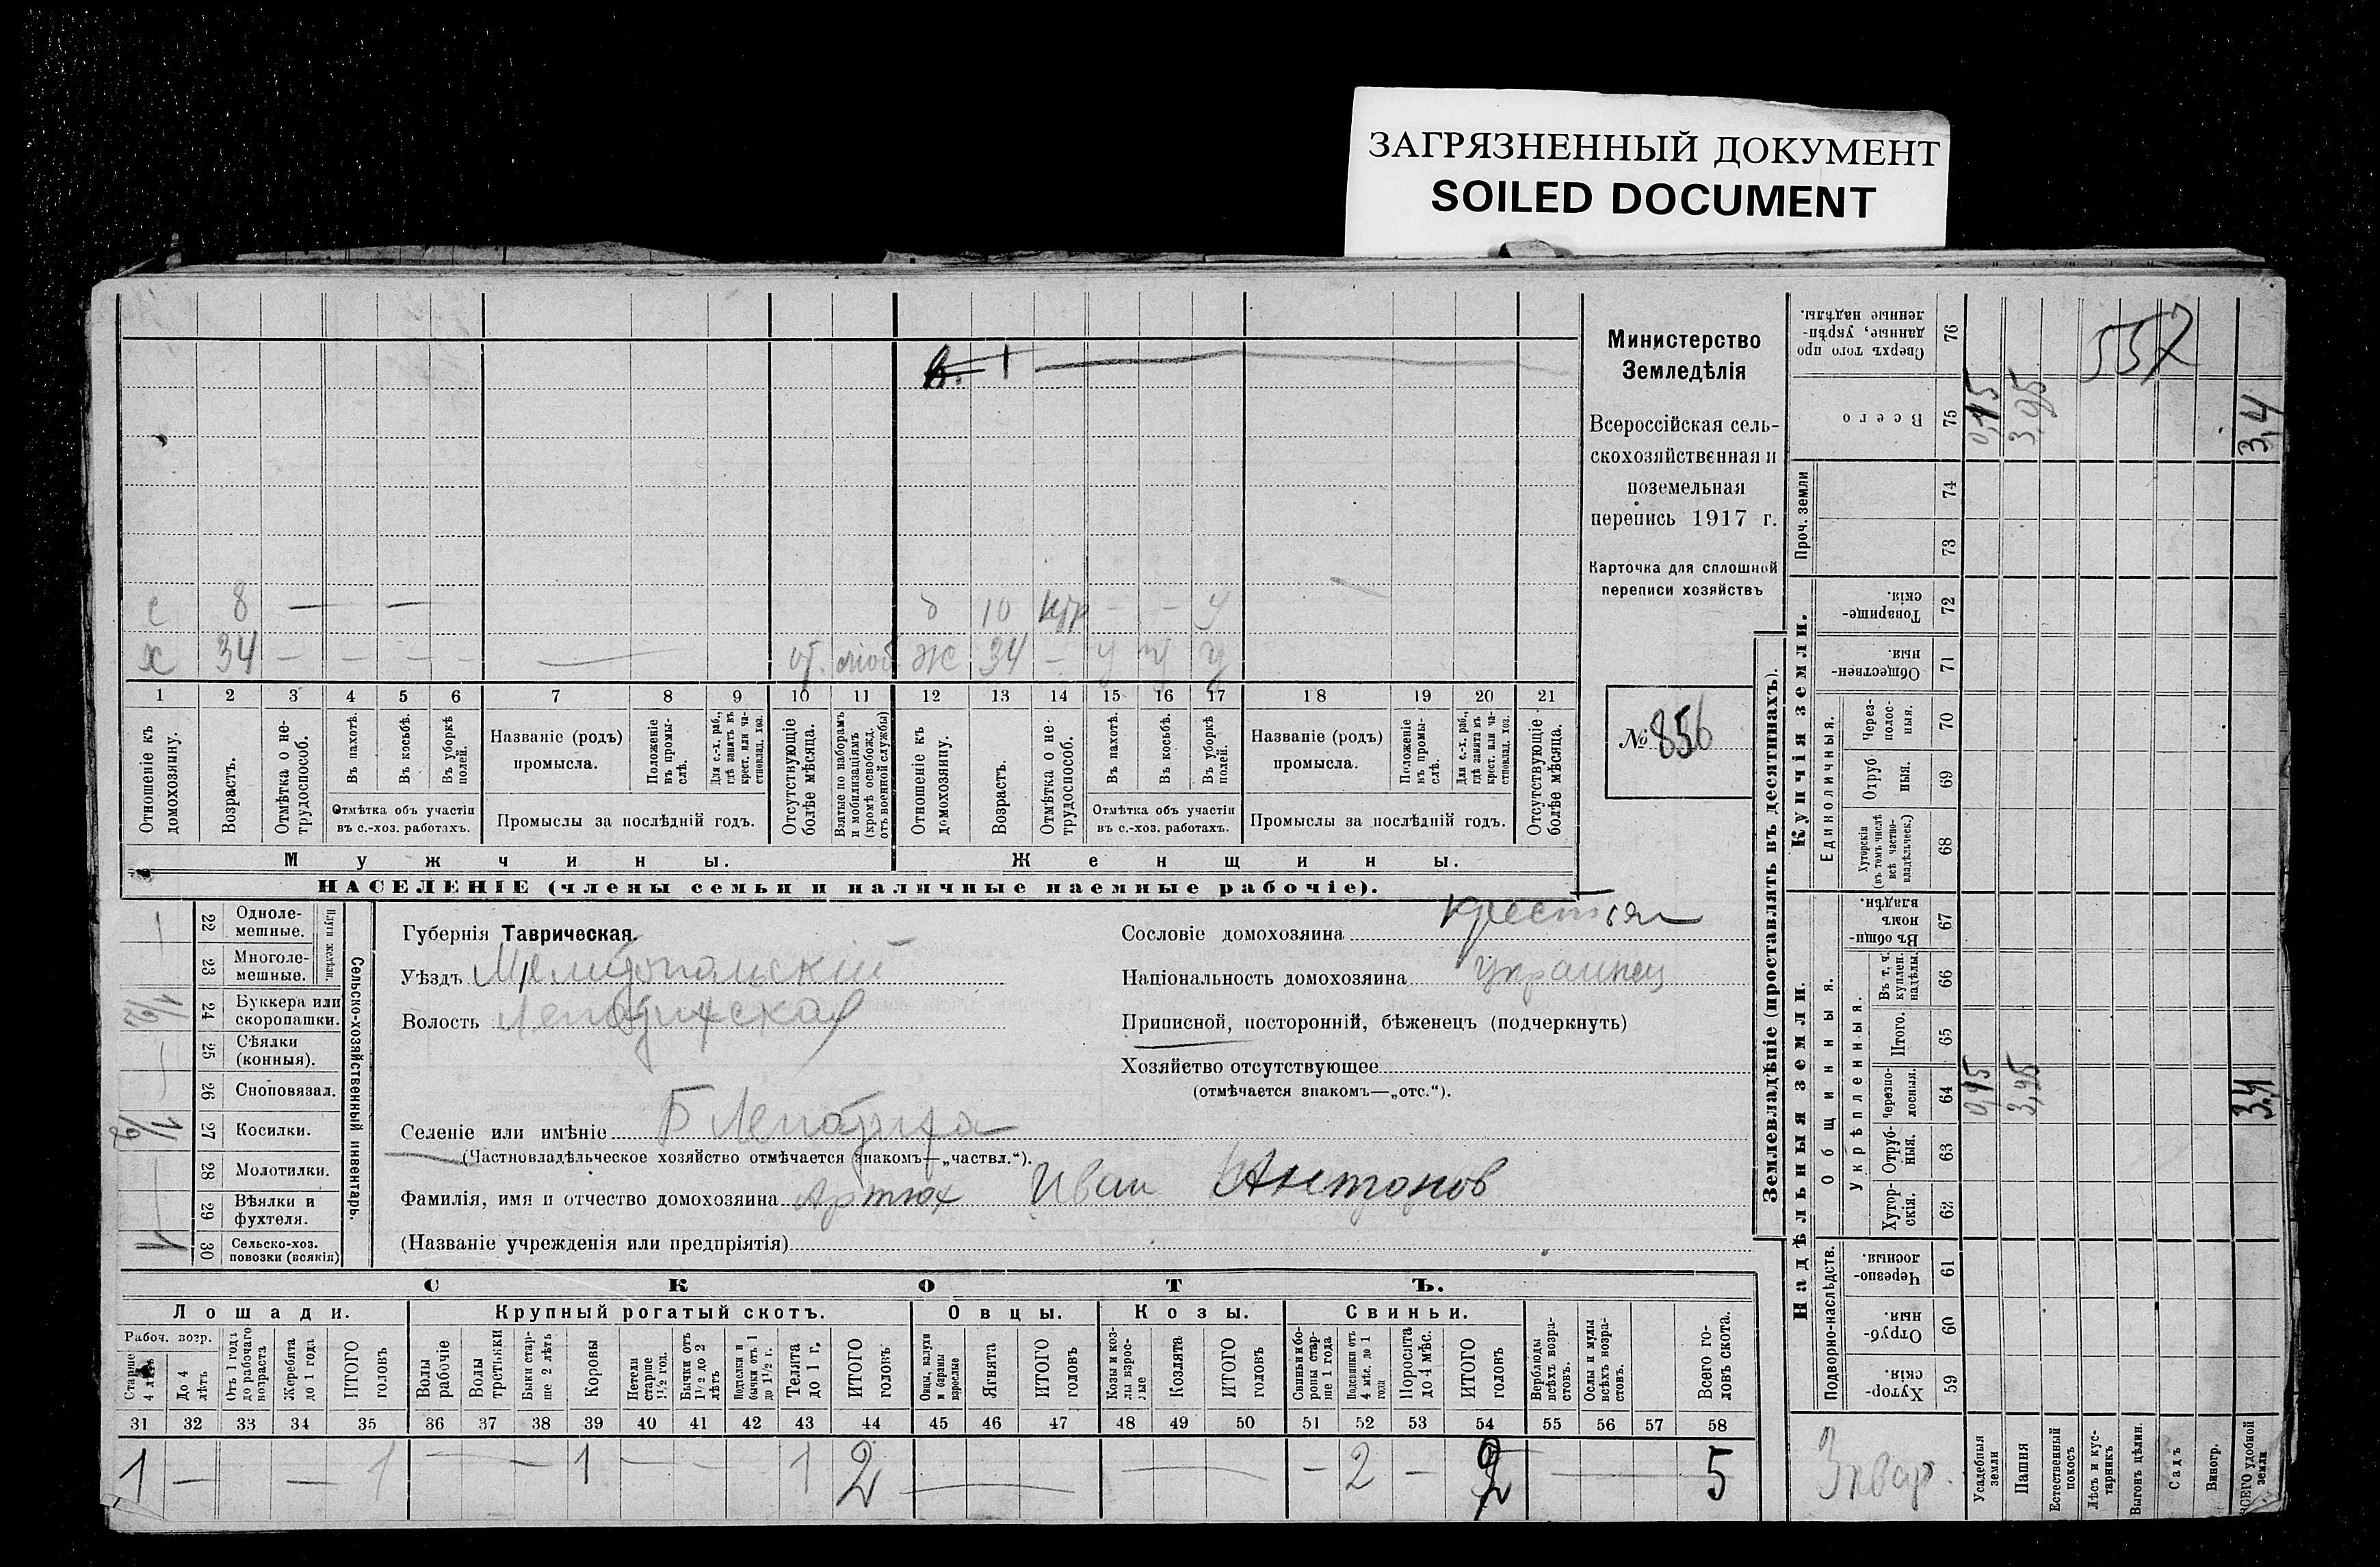 ЗАГРЯЗНЕННЫЙ ДОКУМЕНТ
SOILED DOCUMENT
Министерство
Земледѣлія
Всероссійская сель-
скохозяйственная и
поземельная
перепись 1917 г.
Карточка для сплошной
переписи хозяйствъ
№ 856
в. 1
с 8 — — д 10 — — у
х 34 — — — — — от. моб ж 34 — у у у
1 2 3 4 5 6 7 8 9 10 11 12 13 14 15 16 17 18 19 20 21
Отношеніе къ домохозяину.
Возрастъ.
Отмѣтка о не-трудоспособ.
Въ пахотѣ.
Въ косьбѣ.
Въ уборкѣ полей.
Отмѣтка объ участіи
въ с.-хоз. работахъ.
Названіе (родъ)
промысла.
Положеніе въ промы-слѣ.
Для с.-х. раб., гдѣ занятъ въ крест. или ча-стновлад. хоз.
Промыслы за послѣдній годъ.
Отсутствующіе болѣе мѣсяца.
Взятые по наборамъ и мобилизаціямъ (кромѣ освобожд. отъ военной службы)
Отношеніе къ домохозяину.
Возрастъ.
Отмѣтка о не-трудоспособ.
Въ пахотѣ.
Въ косьбѣ.
Въ уборкѣ полей.
Отмѣтка объ участіи
въ с.-хоз. работахъ.
Названіе (родъ)
промысла.
Положеніе въ промы-слѣ.
Для с.-х. раб., гдѣ занята въ крест. или ча-стновлад. хоз.
Промыслы за послѣдній годъ.
Отсутствующіе болѣе мѣсяца.
Мужчины. Женщины.
НАСЕЛЕНІЕ (члены семьи и наличные наемные рабочіе).
Сельско-хозяйственный инвентарь.
Плуги желѣзн.
22 Одноле-мешные.
23 Многоле-мешные.
24 Буккера или скоропашки. 1/2
25 Сѣялки (конныя).
26 Сноповязал.
27 Косилки. 1/2
28 Молотилки.
29 Вѣялки и фухтеля.
30 Сельско-хоз. повозки (всякія) 1
Губернія Таврическая
Уѣздъ Мелитопольскій
Волость Лепатихская
Селеніе или имѣніе Б Лепатиха
(Частновладѣльческое хозяйство отмѣчается знакомъ—„частвл.“).
Фамилія, имя и отчество домохозяина Артюх Иван Антонов
(Названіе учрежденія или предпріятія)
Сословіе домохозяина крестьян
Національность домохозяина украинец
Приписной, посторонній, бѣженецъ (подчеркнуть)
Хозяйство отсутствующее
(отмѣчается знакомъ—„отс.“).
СКОТЪ.
Лошади. Крупный рогатый скотъ. Овцы. Козы. Свиньи.
Рабоч. возр.
Старше 4 лѣтъ
До 4 лѣтъ
Отъ 1 года до рабочаго возраста
Жеребята до 1 года
ИТОГО головъ
Волы рабочіе
Волы третьяки
Быки стар-ше 2 лѣтъ
Коровы
Нетели старше 1½ год.
Бычки отъ 1½ до 2 лѣтъ
Подтелки и бычки отъ 1 до 1½ г.
Телята до 1 г.
ИТОГО головъ
Овцы, валухи и бараны взрослые
Ягнята
ИТОГО головъ
Козы и коз-лы взрос-лые
Козлята
ИТОГО головъ
Свиньи и бо-ровы стар-ше 1 года
Подсвинки отъ 4 мѣс. до 1 года
Поросята до 4 мѣс.
ИТОГО головъ
Верблюды всѣхъ возра-стовъ.
Ослы и мулы всѣхъ возра-стовъ.
Всего го-ловъ скота.
31 32 33 34 35 36 37 38 39 40 41 42 43 44 45 46 47 48 49 50 51 52 53 54 55 56 57 58
1 — — 1 — — 1 — — 1 2 — — — 2 — 2 — 5
Землевладѣніе (проставлять въ десятинахъ).
Надѣльныя земли. Купчія земли. Проч. земли
Подворно-наслѣдств.
Общинныя.
Укрѣпленныя.
Единоличныя.
59 Хутор-скія.
60 Отруб-ныя.
61 Черезпо-лосныя.
62 Хутор-скія.
63 Отруб-ныя.
64 Черезпо-лосныя.
65 Итого.
66 Въ т. ч. куплен. надѣлы.
67 Въ общи-номъ владѣн.
68 Хуторскія (въ томъ числѣ всѣ частно-владѣльческ.)
69 Отруб-ныя.
70 Через-полос-ныя.
71 Обществен-ныя.
72 Товарище-скія.
73
74
75 Всего
76 Сверхъ того про-данные, укрѣп-ленные надѣлы.
557
0,45 3,95 3,4
0,45 3,95 3,4
Усадебныя земли
Пашня
Естественный покосъ
Лѣсъ и кус-тарникъ
Выгонъ цѣлин.
Садъ
Виногр.
ВСЕГО удобной земли